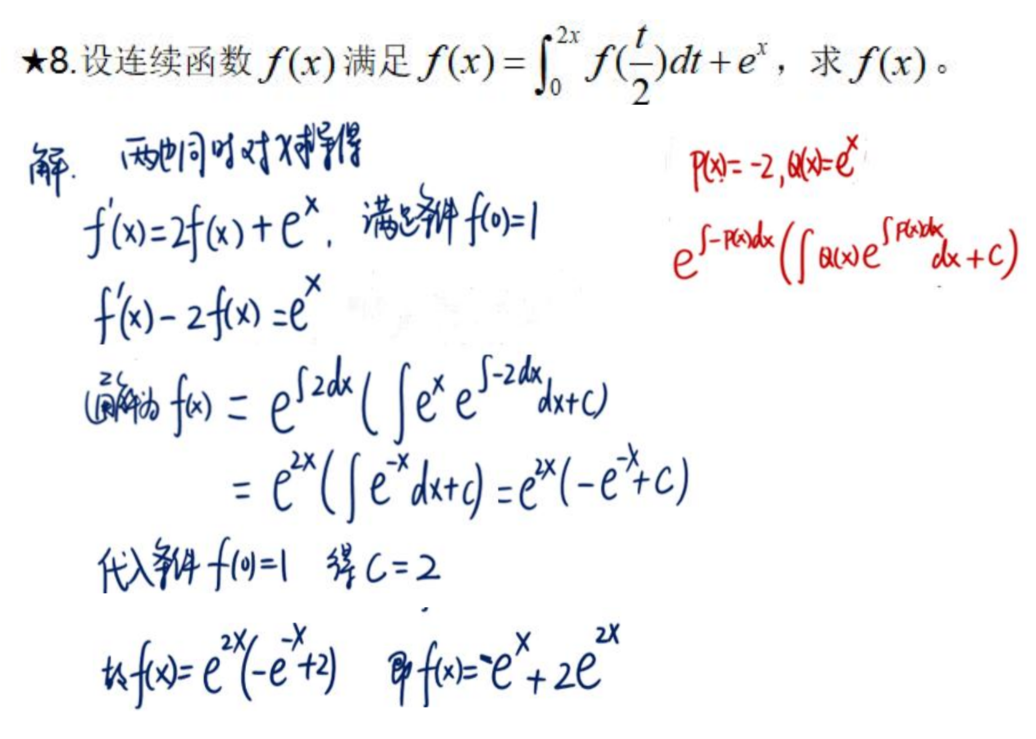 ★8.设连续函数 f(x) 满足 f(x)=∫₀^{2x} f(t/2)dt+e^x，求 f(x)。
解. 两边同时对x求导得
P(x)=-2,Q(x)=e^x
f'(x)=2f(x)+e^x. 满足条件f(0)=1
e^{∫-P(x)dx}(∫Q(x)e^{∫P(x)dx}dx+C)
f'(x)-2f(x)=e^x
通解为f(x)=e^{∫2dx}(∫e^x e^{∫-2dx}dx+C)
=e^{2x}(∫e^{-x}dx+C)=e^{2x}(-e^{-x}+C)
代入条件f(0)=1 得C=2
故f(x)=e^{2x}(-e^{-x}+2) 即f(x)=-e^x+2e^{2x}